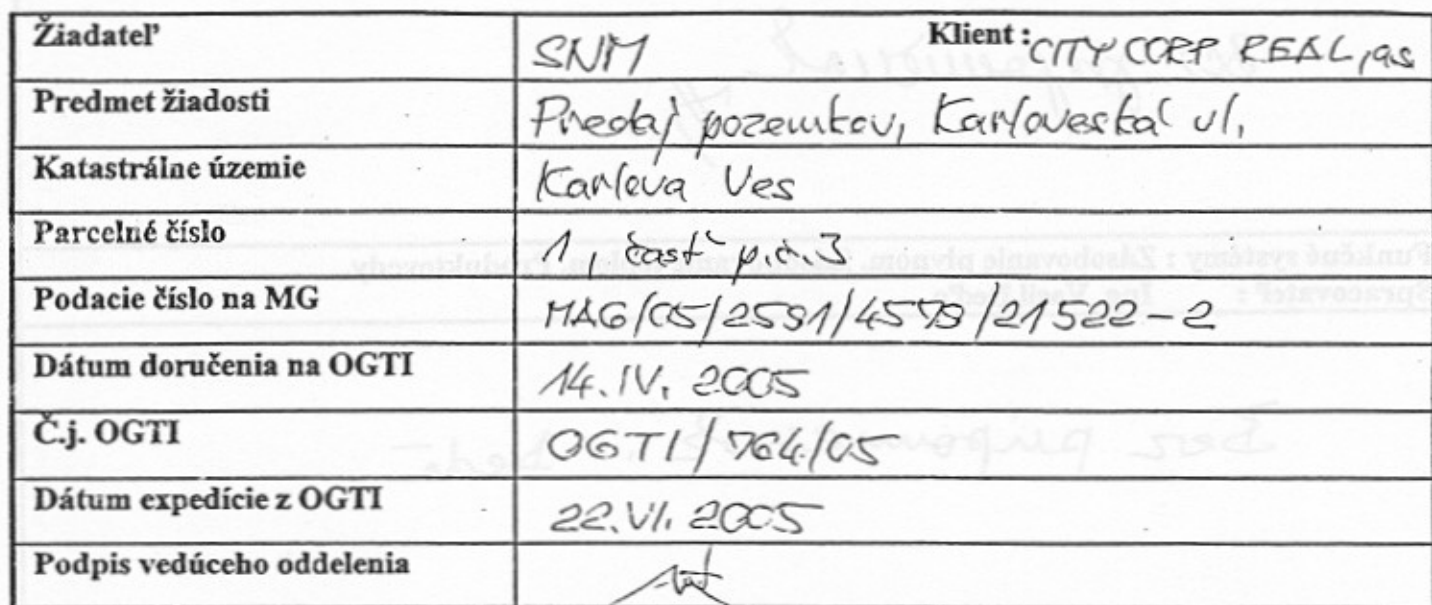 Žiadateľ SNM Klient : CITY CORP REAL, as
Predmet žiadosti Predaj pozemkov, Karloveská ul.
Katastrálne územie Karlova Ves
Parcelné číslo 1, časť p.č.3
Podacie číslo na MG MAG/05/2591/4578/21522-2
Dátum doručenia na OGTI 14.IV. 2005
Č.j. OGTI OGTI/764/05
Dátum expedície z OGTI 22.VI. 2005
Podpis vedúceho oddelenia